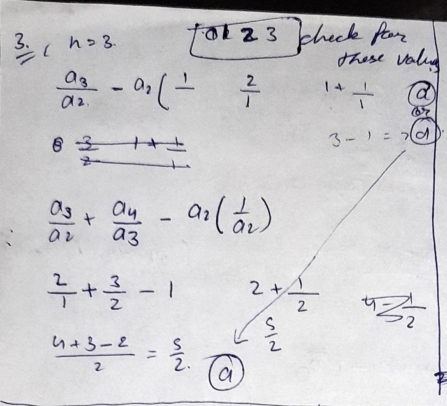 3. n=3. 0 1 2 3 check for
these values
a₃/a₂ - a₂(1/ 2/1 1+1/1 (d)
or
3-1= (d)
3/2 1+1/1
a₃/a₂ + a₄/a₃ - a₂(1/a₂)
2/1 + 3/2 - 1 2+1/2
4+3-2/2 = 5/2. 5/2
(a)